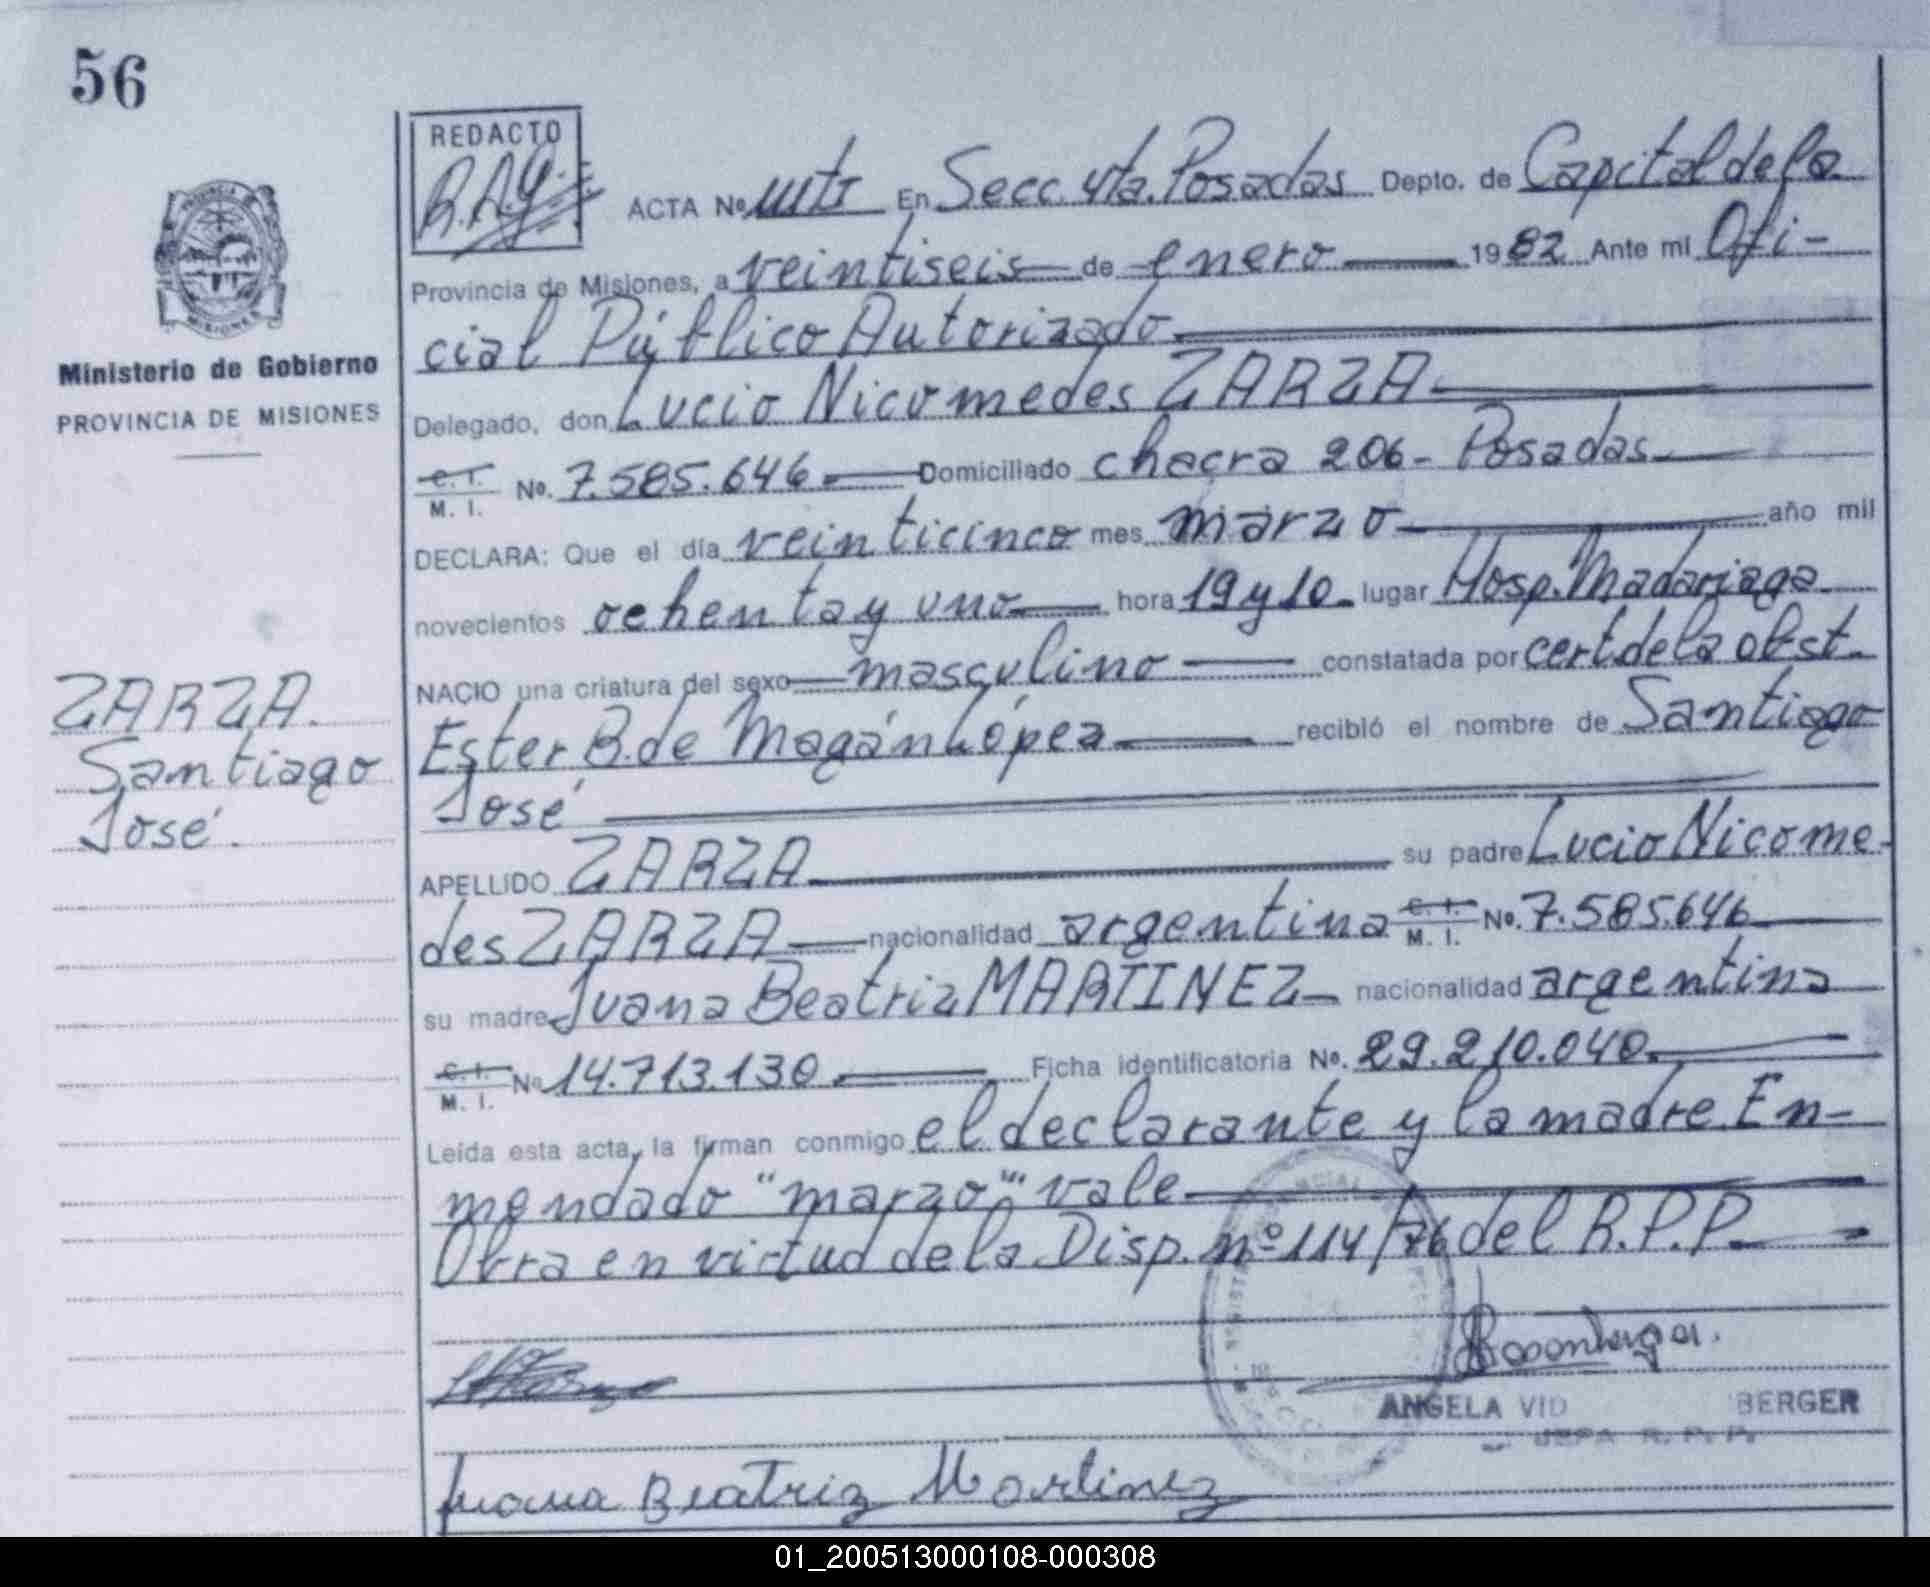 56
REDACTO
R.A.G.
ACTA No. En Secc. 4ta. Posadas Depto. de Capital de la
Provincia de Misiones, a veintiseis de enero 1982 Ante mi Ofi-
cial Público Autorizado
Ministerio de Gobierno
PROVINCIA DE MISIONES
Delegado, don Lucio Nicomedes ZARZA
C. I. M. I. No. 7.585.646 Domiciliado chacra 206 - Posadas
DECLARA: Que el día veinticinco mes marzo año mil
novecientos ochenta y uno hora 19 y 10 lugar Hosp. Madariaga
NACIO una criatura del sexo masculino constatada por cert. de la obst.
ZARZA
Santiago
José.
Ester B. de Magán López recibió el nombre de Santiago
José
APELLIDO ZARZA su padre Lucio Nicome-
des ZARZA nacionalidad argentina C. I. M. I. No. 7.585.646
su madre Juana Beatriz MARTINEZ nacionalidad argentina
C. I. M. I. No 14.713.130 Ficha identificatoria No. 29.210.040
Leída esta acta, la firman conmigo el declarante y la madre. En-
mendado "marzo" vale
Obra en virtud de la Disp. nº 114/76 del R.P.P.
ANGELA VID BERGER
JEFA R. P. P.
Juana Beatriz Martinez
01_200513000108-000308